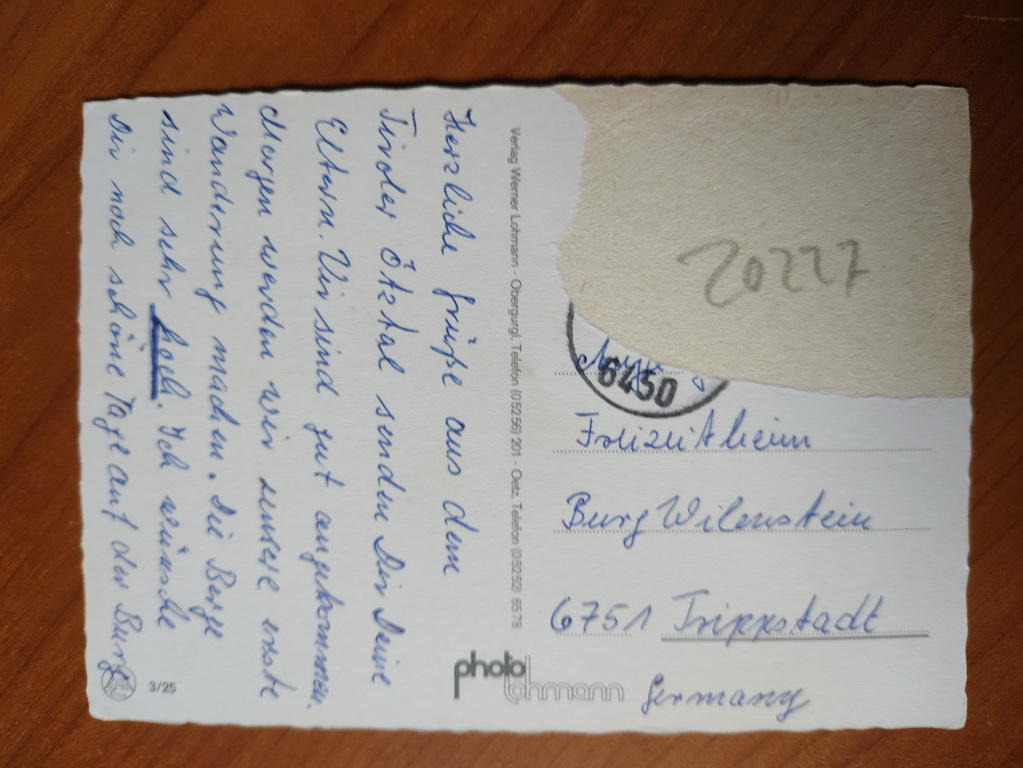 Herzliche Grüße aus dem
Tiroler Ötztal senden Dir Deine
Eltern. Wir sind gut angekommen.
Morgen werden wir unsere erste
Wanderung machen. Die Berge
sind sehr hoch. Ich wünsche
Dir noch schöne Tage auf der Burg
3/25
Verlag Werner Lohmann - Obergurgl, Telefon (05256) 201 - Oetz, Telefon (05252) 6578
photo lohmann
20227
6450
Freizeitheim
Burg Wilenstein
6751 Trippstadt
Germany